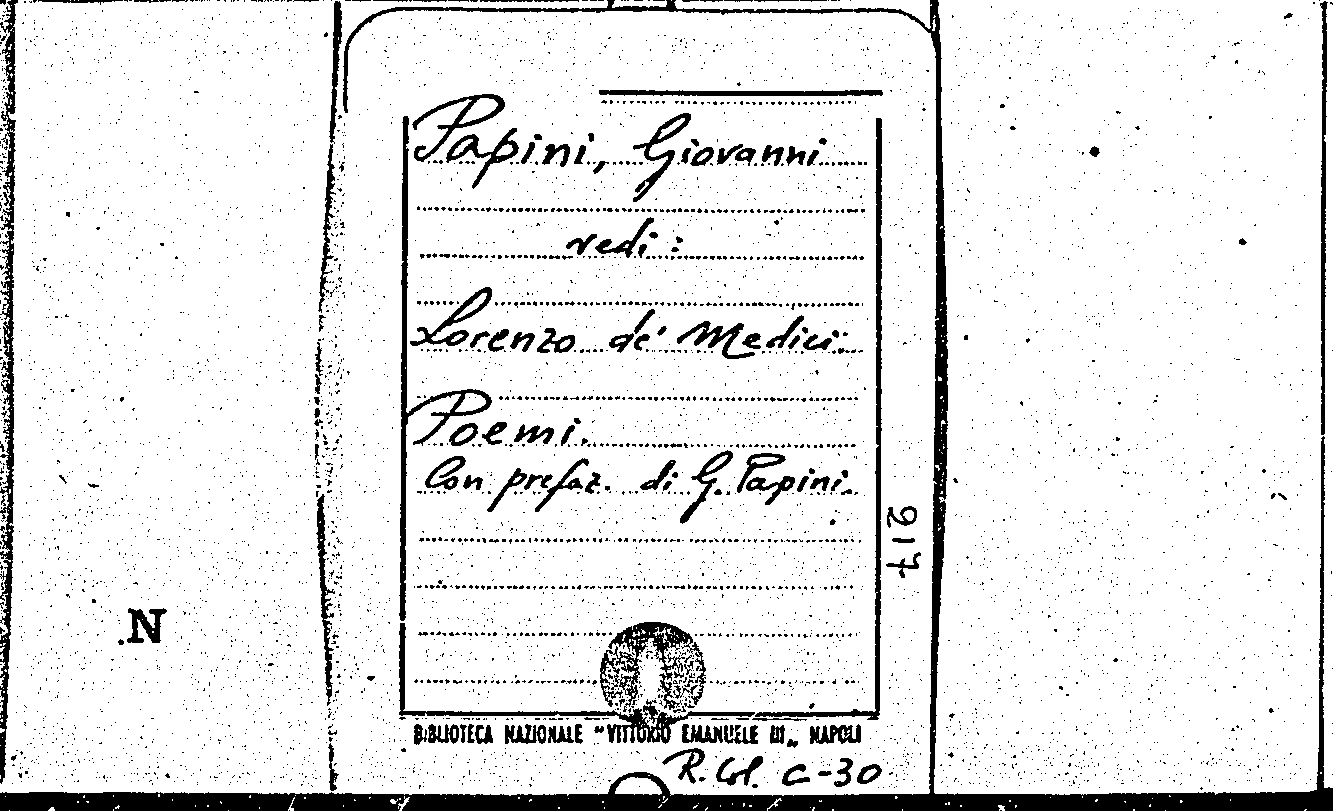 Papini, Giovanni
vedi:
Lorenzo de' Medici.
Poemi.
Con prefaz. di G. Papini.
917
N
BIBLIOTECA NAZIONALE "VITTORIO EMANUELE III„ NAPOLI
R. Col. C-30